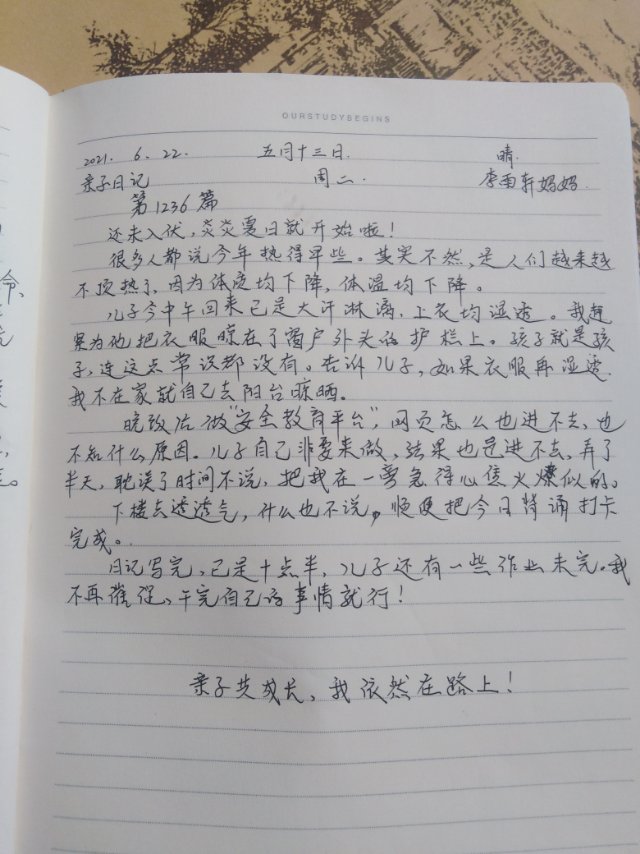 OURSTUDYBEGINS
2021. 6. 22. 五月十三日. 晴.
亲子日记 周二. 李雨轩妈妈.
第1236篇
还未入伏,炎炎夏日就开始啦!
很多人都说今年热得早些。其实不然,是人们越来越
不顶热了,因为体质均下降,体温均下降。
儿子今中午回来已是大汗淋漓,上衣均湿透。我赶
紧为他把衣服晾在了窗户外头的护栏上。孩子就是孩
子,连这点常识都没有。告诉儿子,如果衣服再湿透.
我不在家就自己去阳台晾晒。
晚放后做“安全教育平台”,网页怎么也进不去,也
不知什么原因。儿子自己非要来做,结果也是进不去,弄了
半天,耽误了时间不说,把我在一旁急得心焦火燎似的。
下楼去透透气,什么也不说,顺便把今日背诵打卡
完成。
日记写完,已是十点半,儿子还有一些作业未完。我
不再催促,干完自己的事情就行!
亲子共成长,我依然在路上!